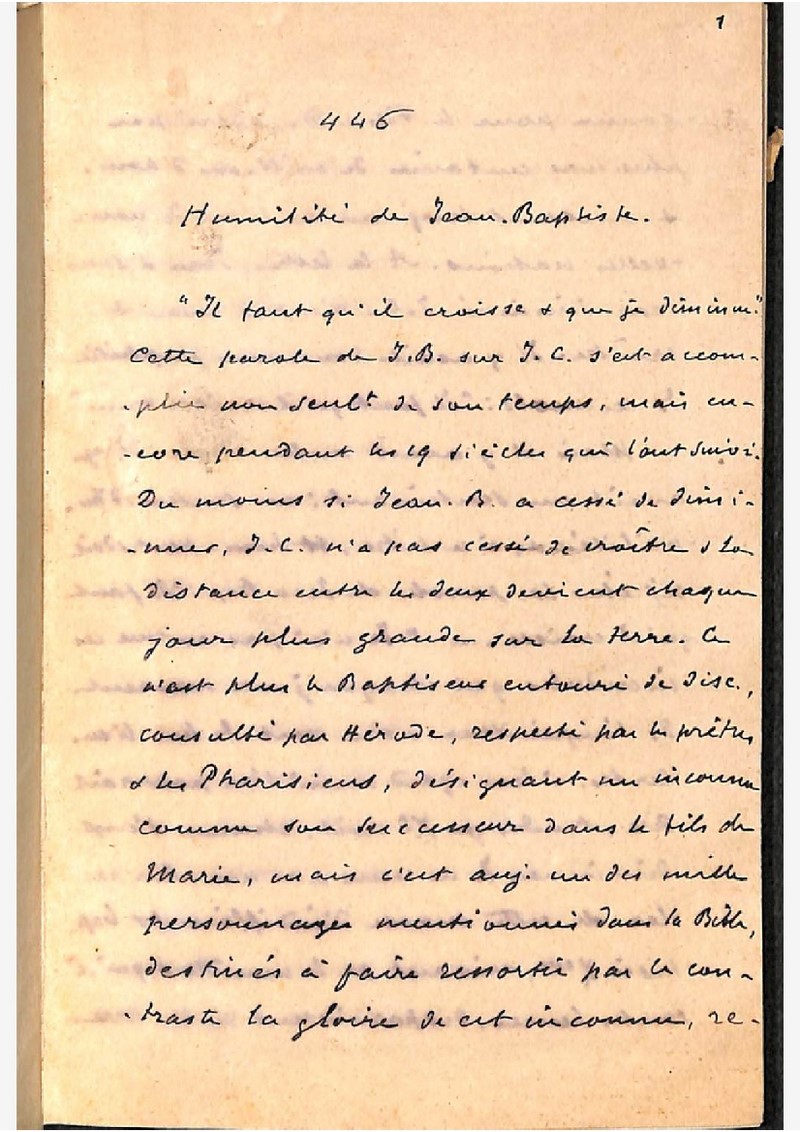 1
446
Humilité de Jean-Baptiste.
"Il faut qu'il croisse & que je diminue."
Cette parole de J.B. sur J.C. s'est accom-
-plie non seult de son temps, mais en-
-core pendant les 19 siècles qui l'ont suivi.
Du moins si Jean-B. a cessé de dimi-
-nuer, J.C. n'a pas cessé de croître & la
distance entre les deux devient chaque
jour plus grande sur la terre. Ce
n'est plus le Baptiseur entouré de disc.,
consulté par Hérode, respecté par les prêtres
& les Pharisiens, désignant un inconnu
comme son successeur dans le fils de
Marie, mais c'est auj. un des mille
personnages mentionnés dans la Bible,
destinés à faire ressortir par le con-
-traste la gloire de cet inconnu, re-